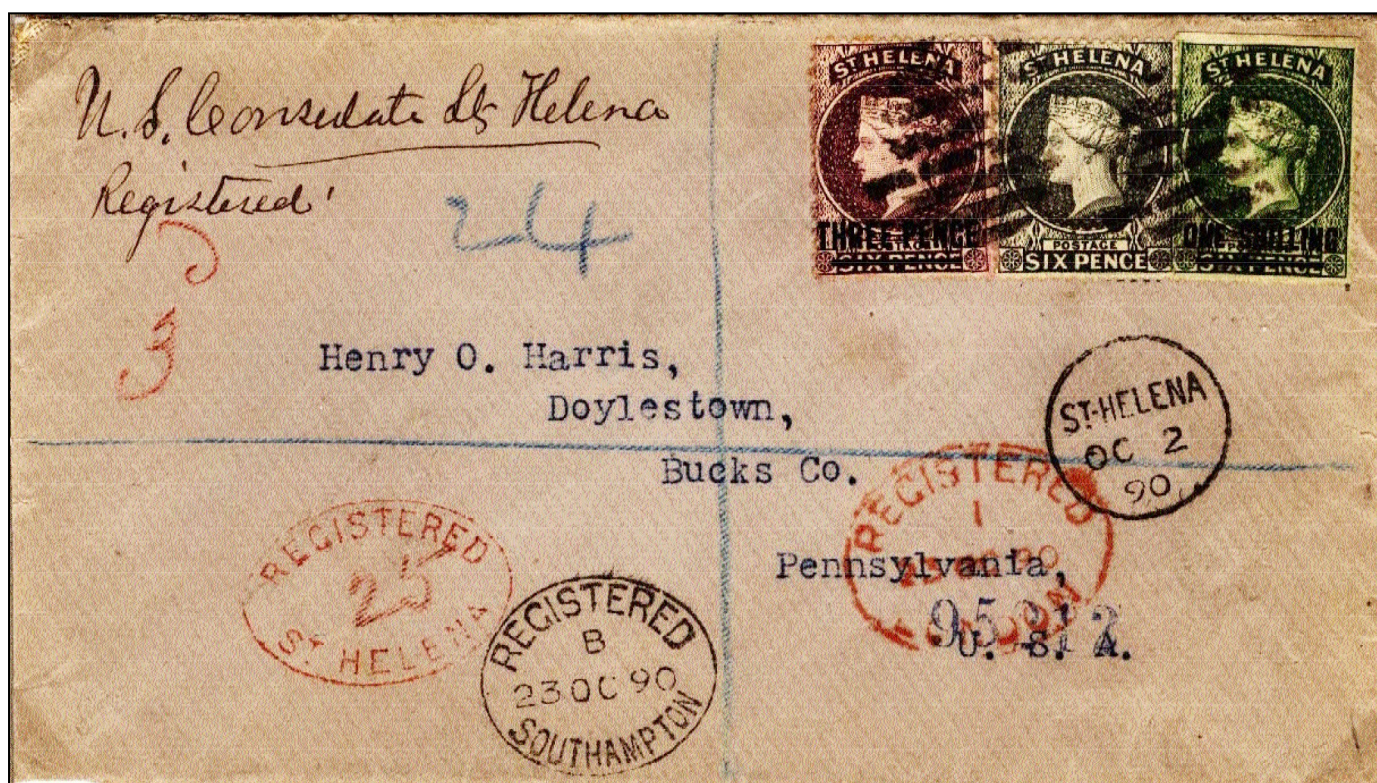 U.S. Consulate St Helena
Registered
24
ST HELENA
THREE PENCE
SIX PENCE
ST HELENA
POSTAGE
SIX PENCE
ST HELENA
ONE SHILLING
SIX PENCE
3
Henry O. Harris,
Doylestown,
Bucks Co.
Pennsylvania,
U. S. A.
ST-HELENA
OC 2
90
REGISTERED
1
90
REGISTERED
25
ST HELENA
REGISTERED
B
23 OC 90
SOUTHAMPTON